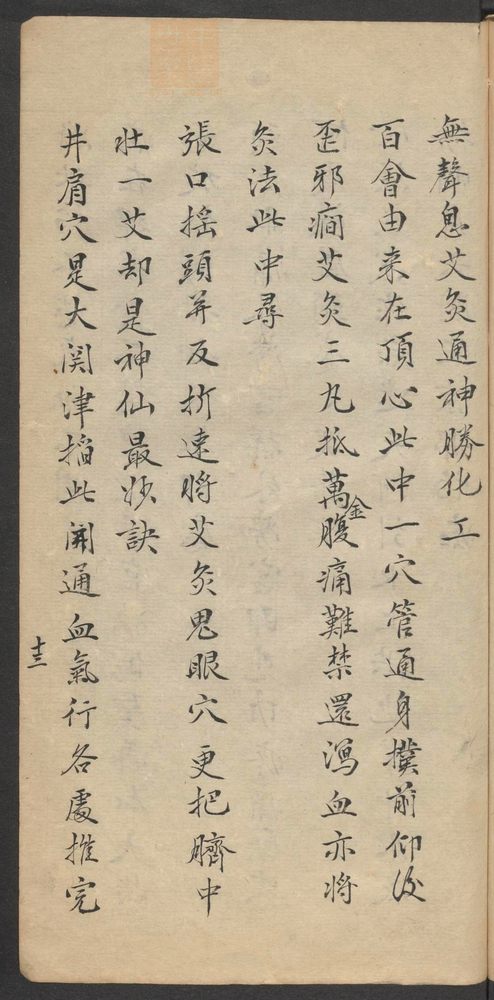 無聲息艾灸通神勝化工
百會由来在頂心此中一穴管通身撲前仰後
歪邪癎艾灸三丸抵萬金腹痛難禁還瀉血亦將
灸法此中尋
張口摇頭并反折速將艾灸鬼眼穴更把臍中
壮一艾却是神仙最妙訣
井肩穴是大関津掐此開通血氣行各處推完
十三